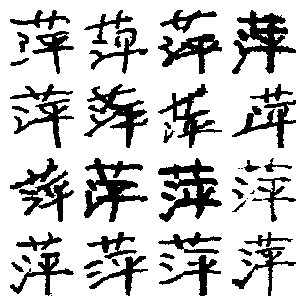 萍萍萍萍
萍萍萍萍
萍萍萍萍
萍萍萍萍